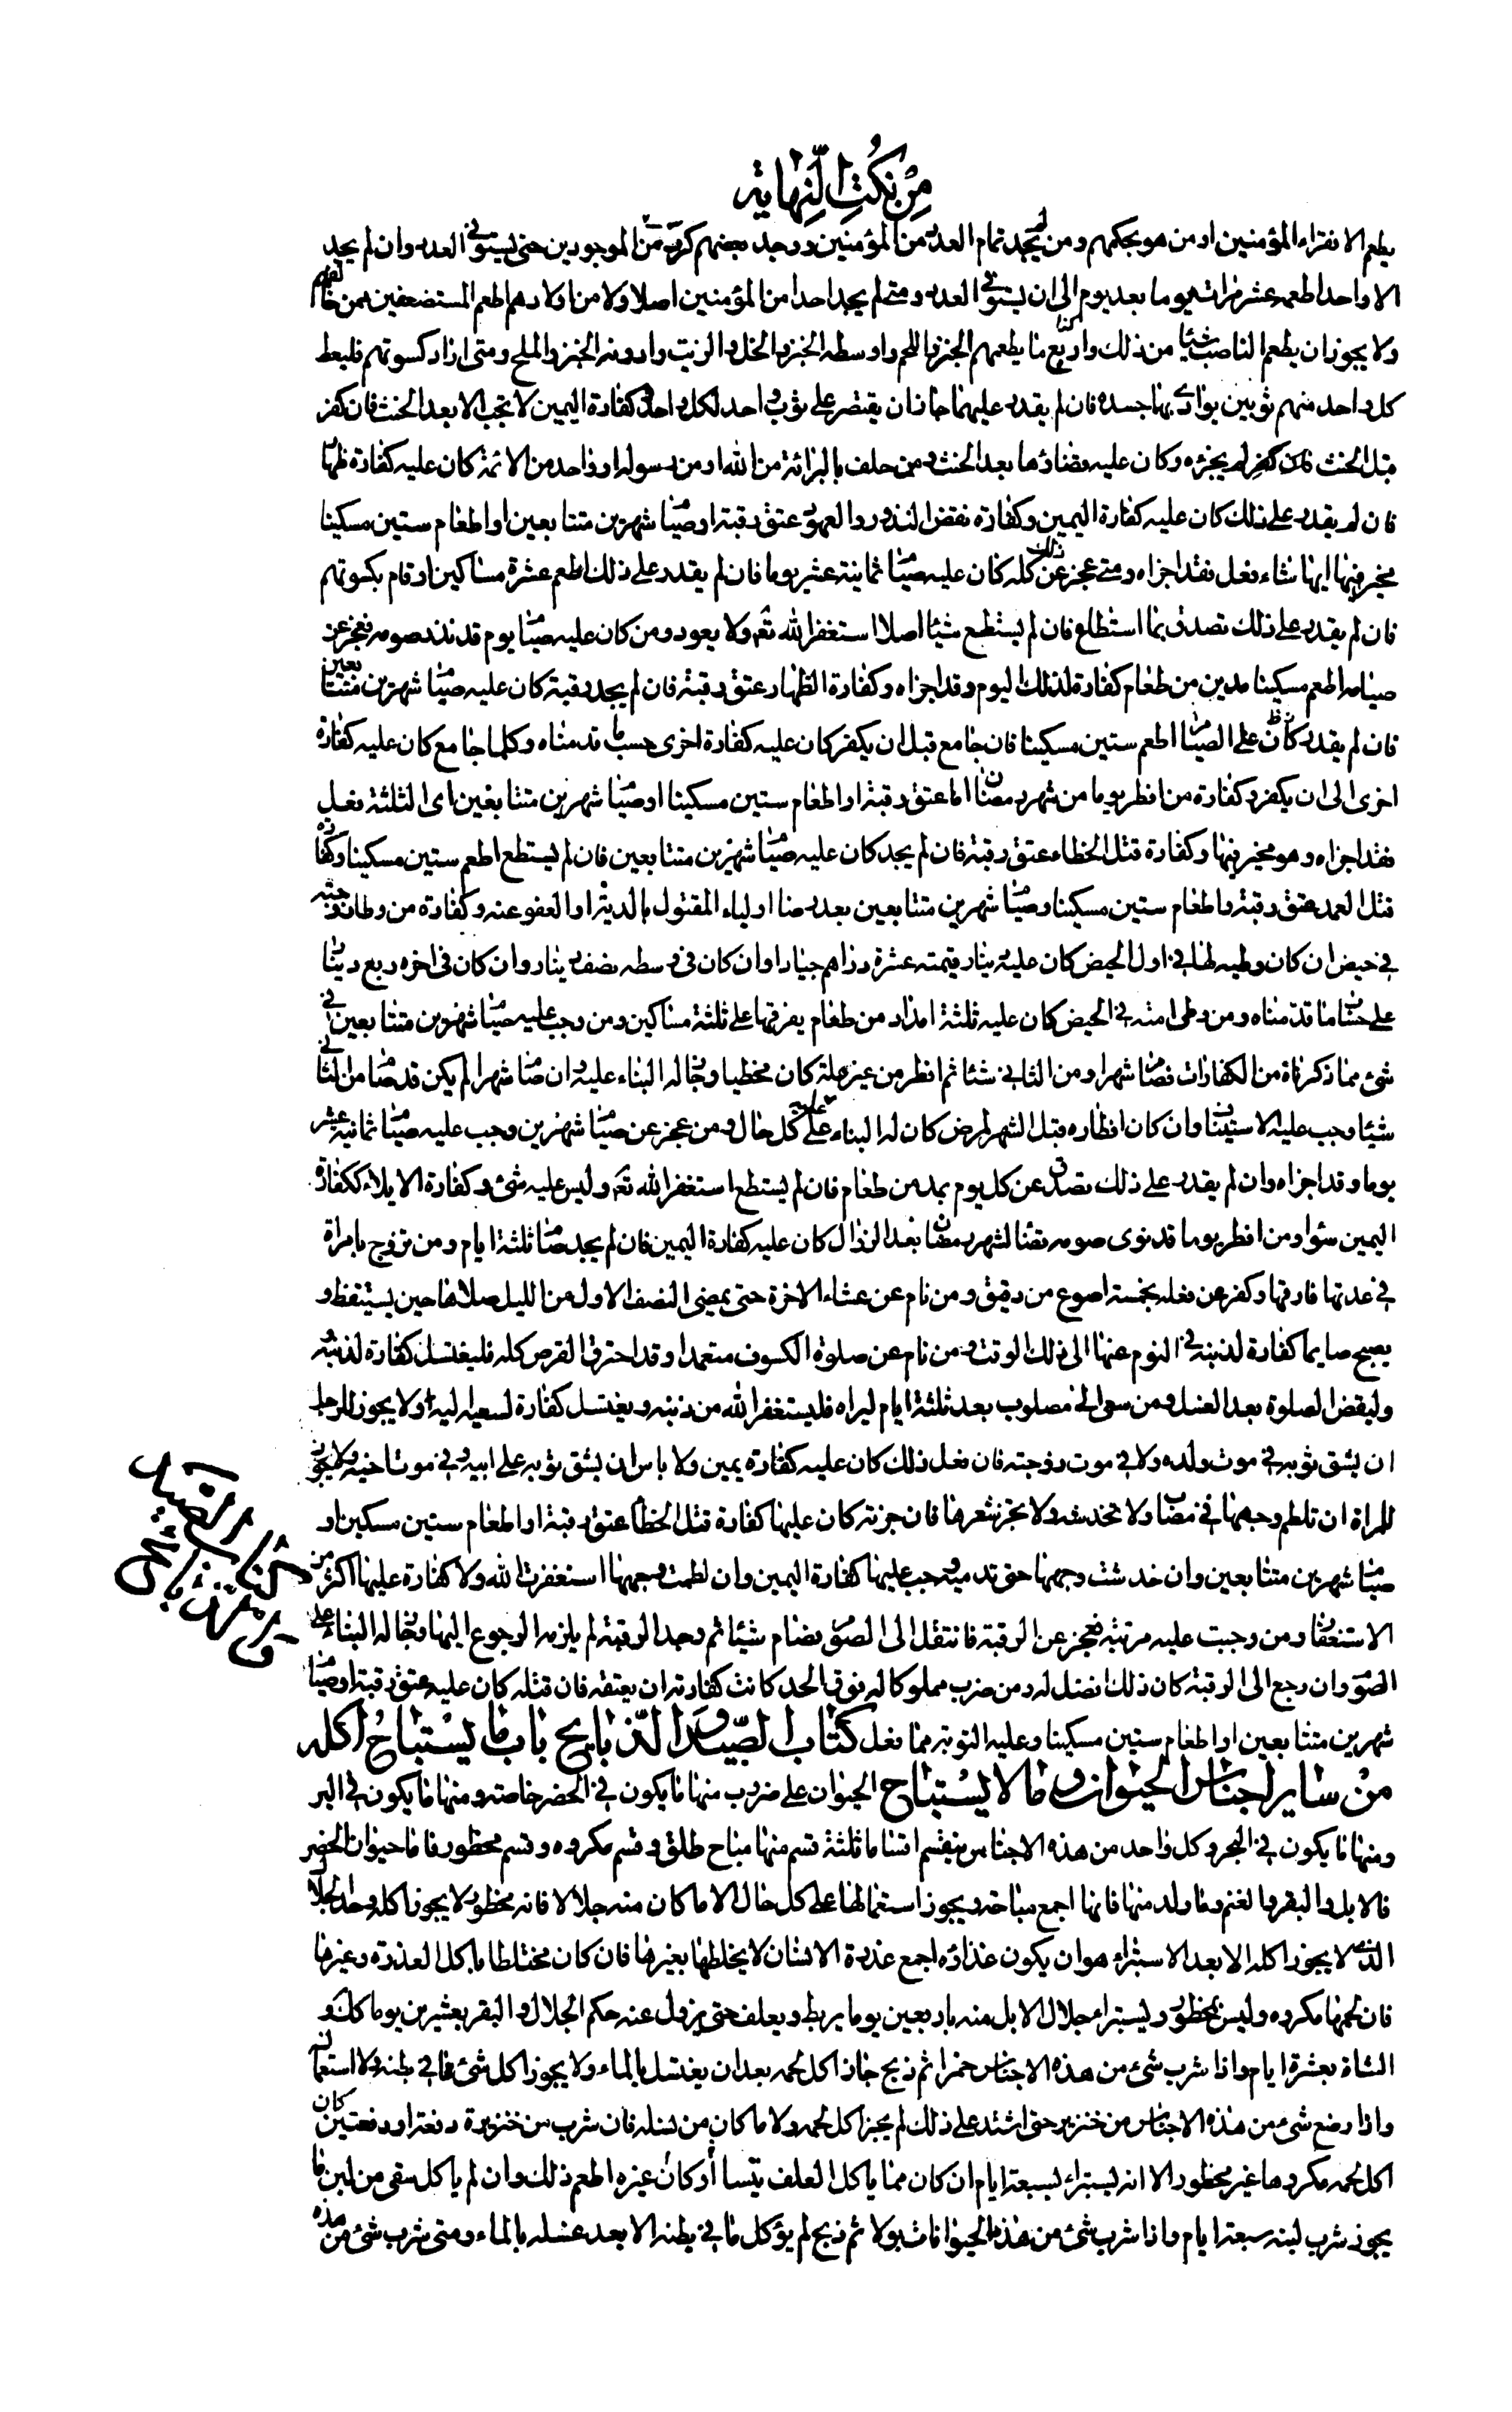 من نكت النهاية
يطعم الا فقراء المؤمنين او من هو بحكمهم ومن لم يجد تمام العدة من المؤمنين ووجد بعضهم كرر من الموجودين حتى يستوفى العدد وان لم يجد
الا واحدا اطعمه عشر مرات يوما بعد يوم الى ان يستوفى العدد ومتى لم يجد احدا من المؤمنين اصلا ولا من اولادهم اطعم المستضعفين ممن خالفهم
ولا يجوز ان يطعم الناصب شيئا من ذلك وارفع ما يطعمهم الخبز واللحم واوسطه الخبز والخل والزيت وادونه الخبز والملح ومتى اراد كسوتهم فليعط
كل واحد منهم ثوبين يوارى بهما جسده فان لم يقدر عليهما جاز ان يقتصر على ثوب واحد لكل واحد وكفارة اليمين لا تجب الا بعد الحنث فان كفر
قبل الحنث لم يجزه وكان عليه قضاؤها بعد الحنث ومن حلف بالبرائة من الله او من رسوله او واحد من الائمة كان عليه كفارة ظهار
فان لم يقدر على ذلك كان عليه كفارة اليمين وكفارة نقض النذور والعهود عتق رقبة او صيام شهرين متتابعين او اطعام ستين مسكينا
مخير فيها ايها شاء فعل فقد اجزاه ومتى عجز عن ذلك كله كان عليه صيام ثمانية عشر يوما فان لم يقدر على ذلك اطعم عشرة مساكين او قام بكسوتهم
فان لم يقدر على ذلك تصدق بما استطاع فان لم يستطع شيئا اصلا استغفر الله تع ولا يعود ومن كان عليه صيام يوم قد نذر صومه فعجز عن
صيامه اطعم مسكينا مدين من طعام كفارة لذلك اليوم وقد اجزاه وكفارة الظهار عتق رقبة فان لم يجد رقبة كان عليه صيام شهرين متتابعين
فان لم يقدر على الصيام اطعم ستين مسكينا فان جامع قبل ان يكفر كان عليه كفارة اخرى حسب ما قدمناه وكلما جامع كان عليه كفارة
اخرى الى ان يكفر وكفارة من افطر يوما من شهر رمضان اما عتق رقبة او اطعام ستين مسكينا او صيام شهرين متتابعين اى الثلثة فعل
فقد اجزاه وهو مخير فيها وكفارة قتل الخطاء عتق رقبة فان لم يجد كان عليه صيام شهرين متتابعين فان لم يستطع اطعم ستين مسكينا وكفارة
قتل العمد عتق رقبة واطعام ستين مسكينا وصيام شهرين متتابعين بعد رضا اولياء المقتول بالدية او العفو عنه وكفارة من وطا زوجته
فى حيض ان كان وطيه لها فى اول الحيض كان عليه دينار قيمته عشرة دراهم جيادا وان كان فى وسطه نصف دينار وان كان فى اخره ربع دينار
على حساب ما قدمناه ومن وطى امته فى الحيض كان عليه ثلثة امداد من طعام يفرقها على ثلثة مساكين ومن وجب عليه صيام شهرين متتابعين فى
شئ مما ذكرناه من الكفارات فصام شهرا ومن الثانى شئا ثم افطر من غير علة كان مخطيا وجاز له البناء عليه وان صام شهرا لم يكن قد صام من الثانى
شيئا وجب عليه الاستيناف وان كان افطاره قبل الشهر لمرض كان له البناء عليه على كل حال ومن عجز عن صيام شهرين وجب عليه صيام ثمانية عشر
يوما وقد اجزاه وان لم يقدر على ذلك تصدق عن كل يوم بمد من طعام فان لم يستطع استغفر الله تع وليس عليه شئ وكفارة الايلاء ككفارة
اليمين سواء ومن افطر يوما قد نوى صومه قضاء لشهر رمضان بعد الزوال كان عليه كفارة اليمين فان لم يجد صام ثلثة ايام ومن تزوج بامراة
فى عدتها فارقها وكفر عن فعله بخمسة اصوع من دقيق ومن نام عن عشاء الاخرة حتى يمضى النصف الاول من الليل صلاها حين يستيقظ و
يصبح صايما كفارة لذنبه فى النوم عنها الى ذلك الوقت ومن نام عن صلوة الكسوف متعمدا وقد احترق القرص كله فليغتسل كفارة لذنبه
وليقض الصلوة بعد الغسل ومن سعى الى مصلوب بعد ثلثة ايام ليراه فليستغفر الله من ذنبه ويغتسل كفارة لسعيه اليه ولا يجوز للرجل
ان يشق ثوبه فى موت ولده ولا فى موت زوجته فان فعل ذلك كان عليه كفارة يمين ولا باس ان يشق ثوبه على ابيه وفى موت اخيه ولا يجوز
للمراة ان تلطم وجهها فى مصاب ولا تخدشه ولا تجز شعرها فان جزته كان عليها كفارة قتل الخطأ عتق رقبة او اطعام ستين مسكين او
صيام شهرين متتابعين وان خدشت وجهها حتى تدميه وجب عليها كفارة اليمين وان لطمت وجهها استغفرت الله ولا كفارة عليها اكثر من
الاستغفار ومن وجبت عليه مرتبة فعجز عن الرقبة فانتقل الى الصوم فصام شيئا ثم وجد الرقبة لم يلزمه الرجوع اليها وجاز له البناء على
الصوم وان رجع الى الرقبة كان ذلك افضل له ومن ضرب مملوكا له فوق الحد كانت كفارته ان يعتقه فان قتله كان عليه عتق رقبة او صيام
شهرين متتابعين او اطعام ستين مسكينا وعليه التوبة مما فعل كتاب الصيد والذبايح باب ما يستباح اكله
من ساير اجناس الحيوان وما لا يستباح الحيوان على ضروب منها ما يكون فى الحضر خاصة ومنها ما يكون فى البر
ومنها ما يكون فى البحر وكل واحد من هذه الاجناس ينقسم اقساما ثلثة قسم منها مباح طلق وقسم مكروه وقسم محظور فاما حيوان الحضر
فالابل والبقر والغنم وما ولد منها فانها اجمع مباحة ويجوز استعمالها على كل حال الا ما كان منه جلالا فانه محظور لا يجوز اكله وحد الجلال
الذى لا يجوز اكله الا بعد الاستبراء هو ان يكون غذاؤه اجمع عذرة الانسان لا يخلطها بغيرها فان كان مختلطا باكل العذرة وغيرها
فان لحمها مكروه وليس بمحظور ويستبراء جلال الابل منه باربعين يوما يربط ويعلف حتى يزول عنه حكم الجلال والبقر بعشرين يوما كك و
الشاة بعشرة ايام واذا شرب شئ من هذه الاجناس خمرا ثم ذبح جاز اكل لحمه بعد ان يغتسل بالماء ولا يجوز اكل شئ مما فى بطنه ولا استعماله
واذا رضع شئ من هذه الاجناس من خنزير حتى اشتد على ذلك لم يجز اكل لحمه ولا ما كان من نسله فان شرب من خنزيرة دفعة او دفعتين كان
اكل لحمه مكروها غير محظور الا انه يستبراء بسبعة ايام ان كان مما ياكل العلف كسبا أو كان غيره اطعم ذلك وان لم ياكل سقى من لبن ما
يجوز شرب لبنه سبعة ايام واذا شرب شئ من هذه الحيوانات بولا ثم ذبح لم يؤكل ما فى بطنه الا بعد غسله بالماء ومتى شرب شئ من هذه
كتاب الصيد
والذبايح